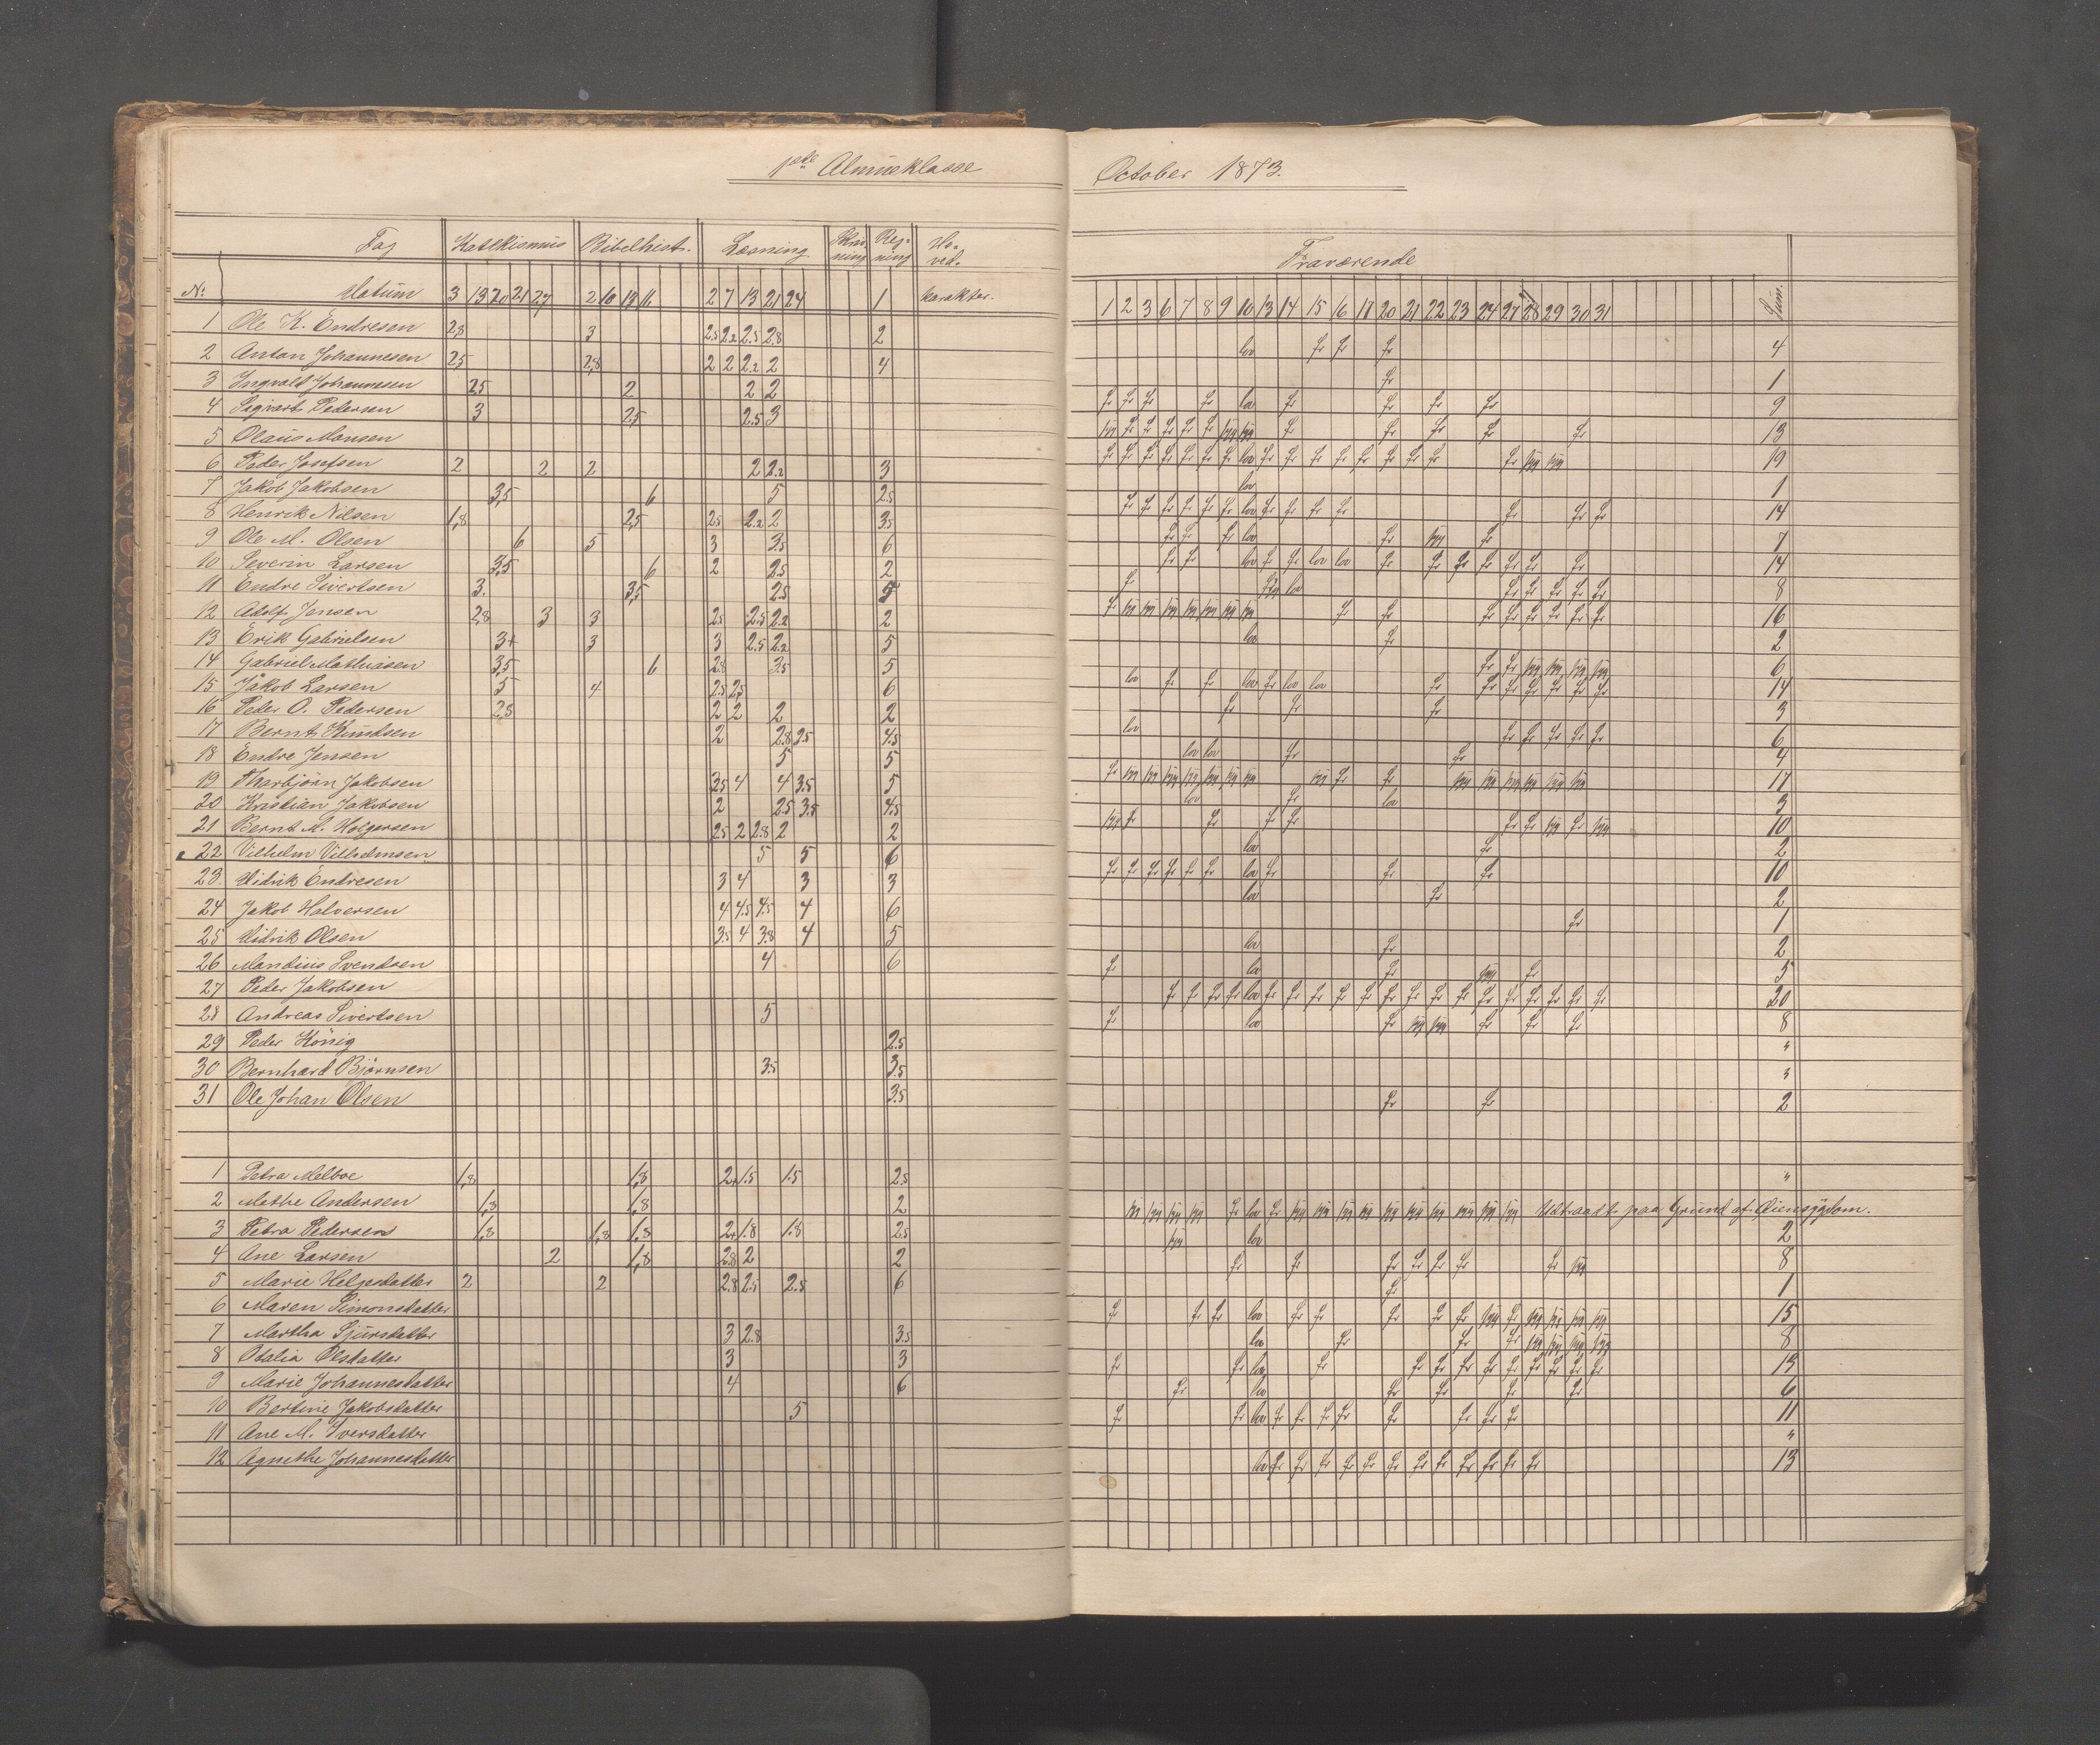 1ste Almueklasse
October 1873.
Fag Katekismus Bibelhist. Læsning Skrivning Regning Hoved.
No. Datum 3 13 20 21 27 2 10 13 16 2 7 13 21 24 1 karakter.
Fraværende
1 2 3 6 7 8 9 10 13 14 15 16 17 20 21 22 23 24 27 28 29 30 31 Sum.
1 Ole K. Endresen 2,8 3 2.5 2.2 2.5 2.8 2 lov fr fr fr 4
2 Anton Johannesen 2,5 2,8 2 2 2.2 2 4 fr 1
3 Ingvald Johannesen 2.5 2 2 2 fr fr fr fr lov fr fr fr fr 9
4 Sigvart Pedersen 3 2,5 2.5 3 13
5 Olaus Monsen 19
6 Peder Josefsen 2 2 2 2 2.2 3 lov 1
7 Jakob Jakobsen 3,5 6 5 2.5 14
8 Henrik Nilsen 1,8 2,5 2.5 2.2 2 3.5 7
9 Ole M. Olsen 6 5 3 3.5 6 14
10 Severin Larsen 3,5 6 2 2.5 2 8
11 Endre Sivertsen 3. 3,5 2.5 5 16
12 Adolf Jensen 2,8 3 3 2.5 2.5 2.2 2 lov fr 2
13 Erik Gabrielsen 3+ 3 3 2.5 2.2 5 6
14 Gabriel Mathiasen 3,5 6 2.8 3.5 5 14
15 Jakob Larsen 5 4 2.5 2,5 6 fr fr fr 3
16 Peder O. Pedersen 2,8 2 2 2 2 lov fr fr fr fr fr 6
17 Bernt Knudsen 2 2.8 3.5 4.5 lov lov fr fr 4
18 Endre Jensen 5 5 17
19 Tharbjörn Jakobsen 3.5 4 4 3.5 5 lov fr lov 3
20 Kristian Jakobsen 2 2.5 3.5 4.5 10
21 Bernt M. Holgersen 2.5 2 2.8 2 2 lov fr 2
22 Vilhelm Vilhelmsen 5 5 6 fr fr fr fr fr fr lov fr fr fr 10
23 Didrik Endresen 3 4 3 3 lov fr 2
24 Jakob Halversen 4 4.5 4.5 4 6 fr 1
25 Didrik Olsen 3.5 4 3.8 4 5 lov fr 2
26 Mandius Svendsen 4 6 5
27 Peder Jakobsen 20
28 Andreas Sivertsen 5 8
29 Peder König 2.5 "
30 Bernhard Björnsen 3.5 3.5 "
31 Ole Johan Olsen 3.5 fr fr 2
1 Petra Melboe 1,8 1,8 2+ 1.5 1.5 2.5 "
2 Methe Andersen 1,8 1,8 2 Udtraadt paa Grund af Øiensygdom.
3 Petra Pedersen 1,8 1,8 1,8 2+ 1.8 1.8 2.5 lov 2
4 Ane Larsen 2 1,8 2.8 2 2 8
5 Marie Helgesdatter 2 2 2.8 2.5 2.5 6 fr 1
6 Maren Simonsdatter 15
7 Martha Sjursdatter 3 2.8 3.5 8
8 Otalia Olsdatter 3 3 13
9 Marie Johannesdatter 4 6 fr lov fr fr fr fr 6
10 Bertine Jakobsdatter 5 11
11 Ane M. Iversdatter "
12 Agnethe Johannesdatter lov fr fr fr fr fr fr fr fr fr fr fr fr 13